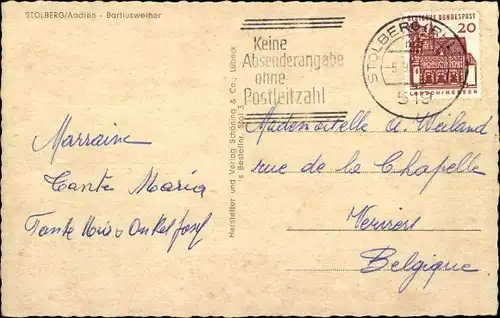 STOLBERG/Aachen - Bartlusweiher
Keine
Absenderangabe
ohne
Postleitzahl
STOLBERG (RH
519
DEUTSCHE BUNDESPOST
20
LORSCH/HESSEN
Hersteller und Verlag Schöning & Co., Lübeck
Bestellnr. Stol 3
Marraine
Tante Maria
Tante Mia u Onkel Josef
Mademoiselle A. Weiland
rue de la Chapelle
Verviers
Belgique